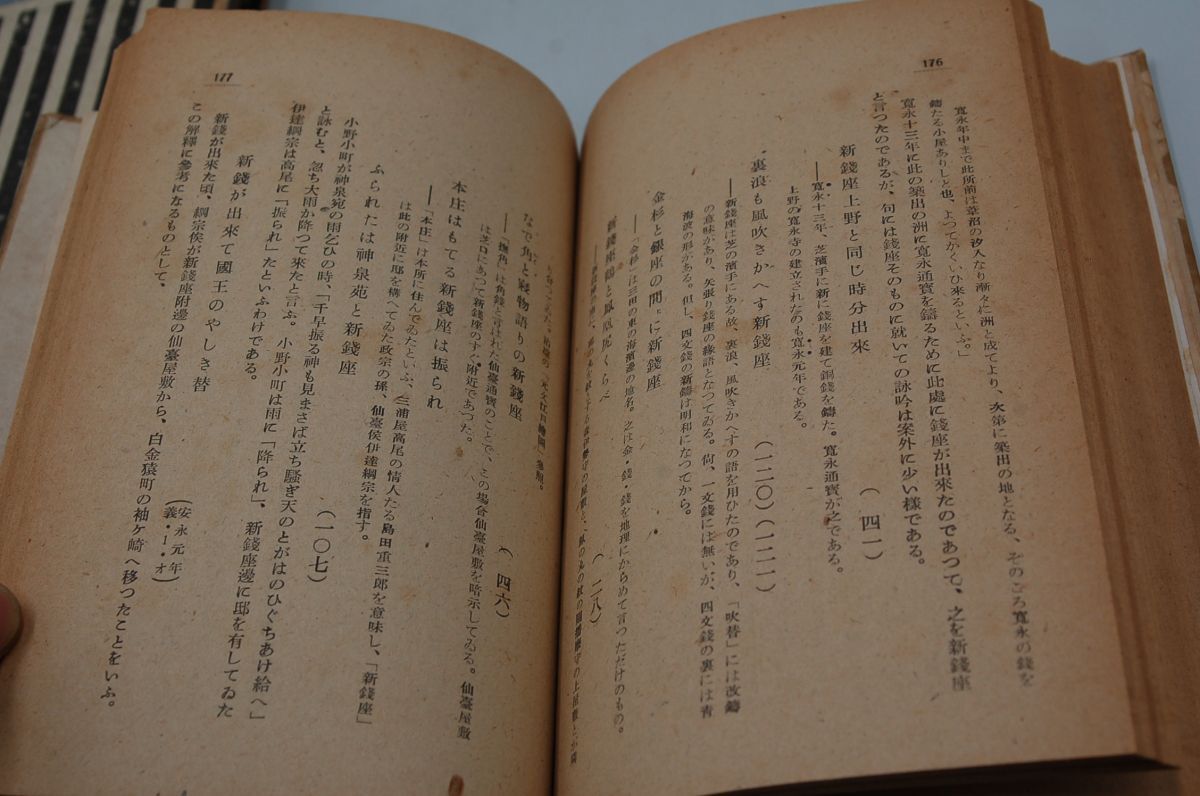 176
寛永年中まで此所前は葦沼の汐入なり漸々に洲と成てより、次第に築出の地となる、そのころ寛永の錢を
鑄たる小屋ありしと也、よつてかくいひ來るといふ。」
寛永十三年に此の築出の洲に寛永通寶を鑄るために此處に錢座が出來たのであつて、之を新錢座
と言つたのであるが、句には錢座そのものに就いての詠吟は案外に少い様である。
新錢座上野と同じ時分出來 (四一)
――寛永十三年、芝濱手に新に錢座を建て銅錢を鑄た。寛永通寶が之である。
上野の寛永寺の建立されたのも寛永元年である。
裏浪も風吹きかへす新錢座 (一二〇)(一二一)
――新錢座は芝の濱手にある故、裏浪、風吹きかへすの語を用ひたのであり、「吹替」には改鑄
の意味があり、矢張り錢座の緣語となつてゐる。尙、一文錢には無いが、四文錢の裏には靑
海波の形がある。但し、四文錢の新鑄は明和になつてから。
金杉と銀座の間に新錢座
――「金杉」は三田の東の海濱邊の地名。之は金・銀・錢を地理にからめて言つただけのもの。
新錢座鶴と鳳凰尻くらべ (二八)
177
なで角と寢物語りの新錢座 (四六)
――「撫角」は角錢と言はれた仙臺通寶のことで、この場合仙臺屋敷を暗示してゐる。仙臺屋敷
は芝口にあつて新錢座のすぐ附近であつた。
本庄はもてる新錢座は振られ
――「本庄」は本所に住んでゐたといふ、三浦屋高尾の情人たる島田重三郎を意味し、「新錢座」
は此の附近に邸を構へてゐた政宗の孫、仙臺侯伊達綱宗を指す。
ふられたは神泉苑と新錢座 (一〇七)
小野小町が神泉苑の雨乞ひの時、「千早振る神も見まさば立ち騷ぎ天のとがはのひぐちあけ給へ」
と詠むと、忽ち大雨が降つて來たと言ふ。小野小町は雨に「降られ」、新錢座邊に邸を有してゐた
伊達綱宗は高尾に「振られ」たといふわけである。
新錢が出來て國王のやしき替 (安永元年 義・1・オ)
新錢が出來た頃、綱宗侯が新錢座附邊の仙臺屋敷から、白金猿町の袖ケ崎へ移つたことをいふ。
この解釋に參考になるものとして、